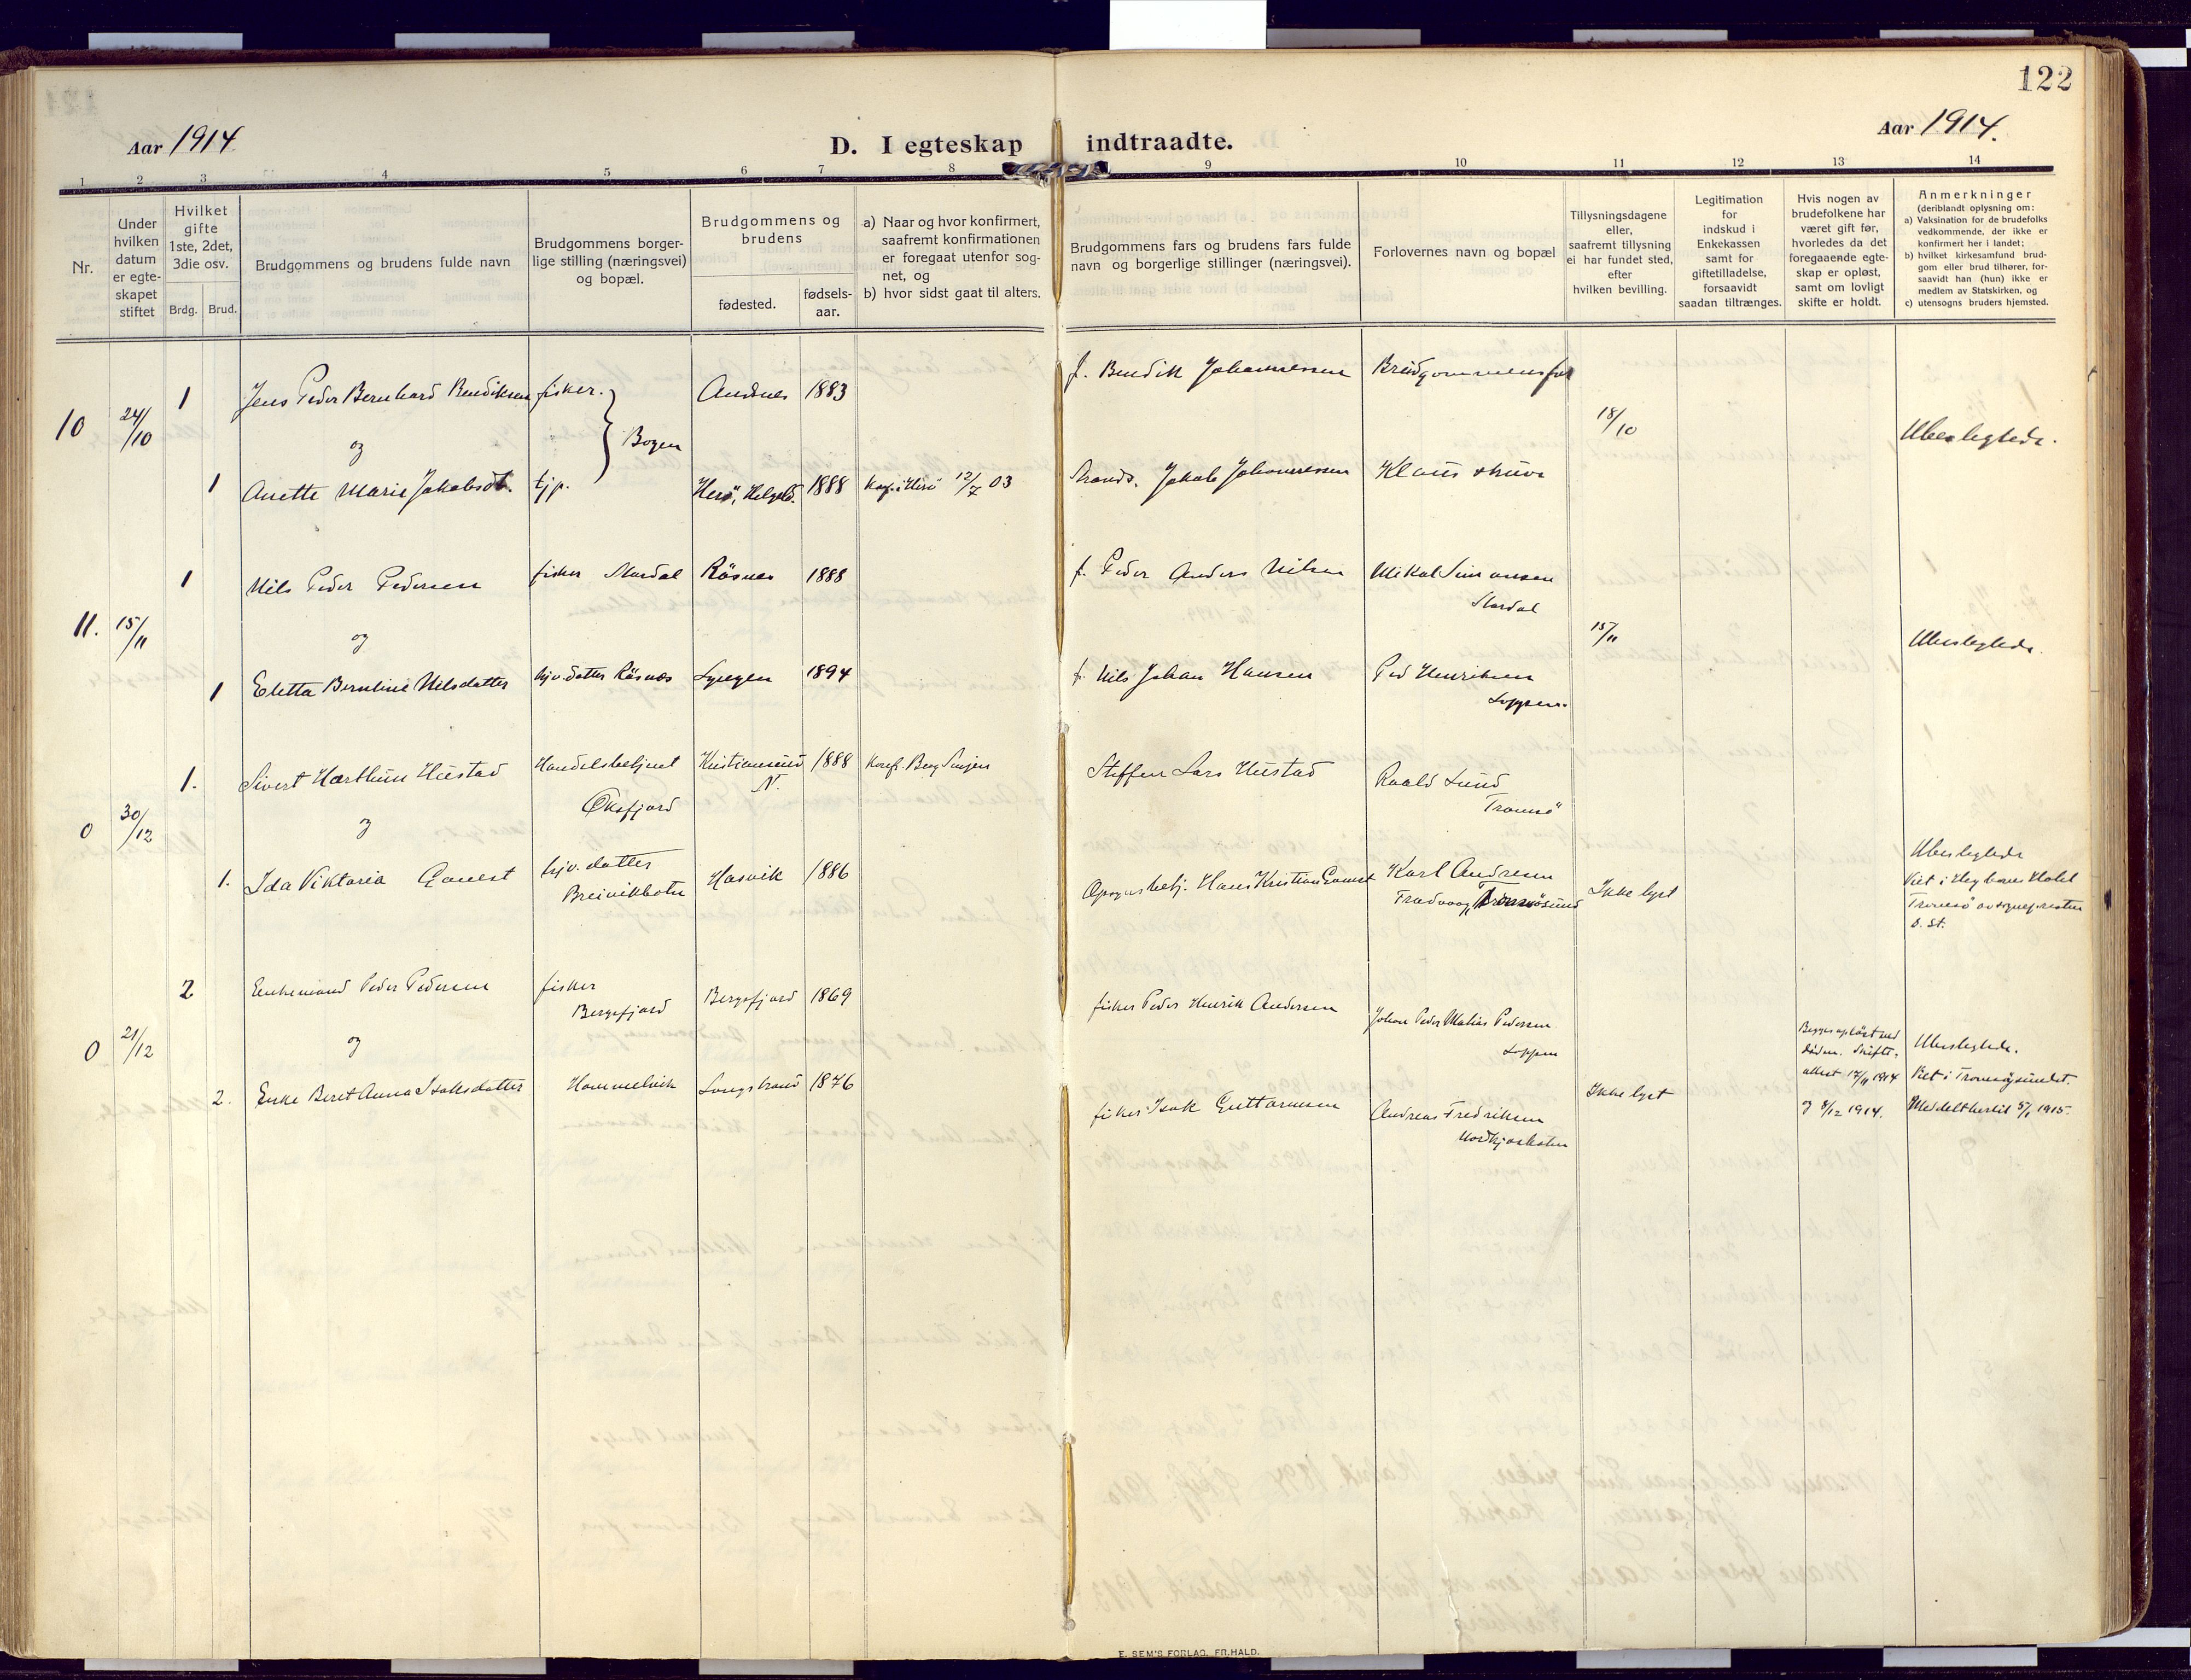 122
Aar 1914
D. I egteskap indtraadte.
Aar 1914.
1 2 3 4 5 6 7 8 9 10 11 12 13 14
Nr.
Under
hvilken
datum
er egte-
skapet
stiftet
Hvilket
gifte
1ste, 2det,
3die osv.
Brdg. Brud.
Brudgommens og brudens fulde navn
Brudgommens borger-
lige stilling (næringsvei)
og bopæl.
Brudgommens og
brudens
fødested.
fødsels-
aar.
a) Naar og hvor konfirmert,
saafremt konfirmationen
er foregaat utenfor sog-
net, og
b) hvor sidst gaat til alters.
Brudgommens fars og brudens fars fulde
navn og borgerlige stillinger (næringsvei).
Forlovernes navn og bopæl
Tillysningsdagene
eller,
saafremt tillysning
ei har fundet sted,
efter
hvilken bevilling.
Legitimation
for
indskud i
Enkekassen
samt for
giftetilladelse,
forsaavidt
saadan tiltrænges.
Hvis nogen av
brudefolkene har
været gift før,
hvorledes da det
foregaaende egte-
skap er opløst,
samt om lovligt
skifte er holdt.
Anmerkninger
(deriblandt oplysning om:
a) Vaksination for de brudefolks
vedkommende, der ikke er
konfirmert her i landet;
b) hvilket kirkesamfund brud-
gom eller brud tilhører, for-
saavidt han (hun) ikke er
medlem av Statskirken, og
c) utensogns bruders hjemsted.
10 24/10
1 Jens Peder Bernhard Bendiksen fisker. Andsnes 1883 f. Bendik Johannessen Brudgommens far
og Bogen 18/10 Ubeslegtede.
1 Anette Marie Jakobsdt. tjp. Herö, Helgeld. 1888 Konf. i Herö 12/7 03 Strands. Jakob Johannessen Klaus Struve
1 Nils Peder Pedersen fisker Skardal Räsnes 1888 f. Peder Anders Nilsen Mikal Simonsen
Skardal
11. 15/11 og 15/11 Ubeslegtede.
1 Eletta Berntine Nilsdatter hjv. datter Räsnes Lyngen 1894 f. Nils Johan Hansen Ped Henriksen
Loppen.
1. Sivert Harthun Hustad Handelsbetjent Kristiansund 1888 Konf. Berg Senjen Steffen Lars Hustad Roald Lund
N.
Øksfjord Tromsö
0 30/12 og
1. Ida Viktoria Gamst hjv. datter Hasvik 1886 Hans Kristian Gamst Karl Andresen Ikke lyst Ubeslegtede
Breivikbotn Tromsösund Viet i Hotel
Tromsö av sognepresten
s. st.
2 Enkemand Peder Pedersen fisker Bergsfjord 1869 fisker Peder Henrik Andersen Johan Peder Matias Pedersen
Bergsfjord Loppen
0 21/12 og Begges opløst ved Ubeslegtede.
døden. Skifte-
2. Enke Beret Anna Isaksdatter Hammelvik 1876 fisker Isak Guttormsen Andreas Fredriksen Ikke lyst attest 17/11 1914 Viet i Tromsøysundet.
og 8/12 1914. Meddelt hertil 5/1 1915.
E. SEM'S FORLAG, FR.HALD.